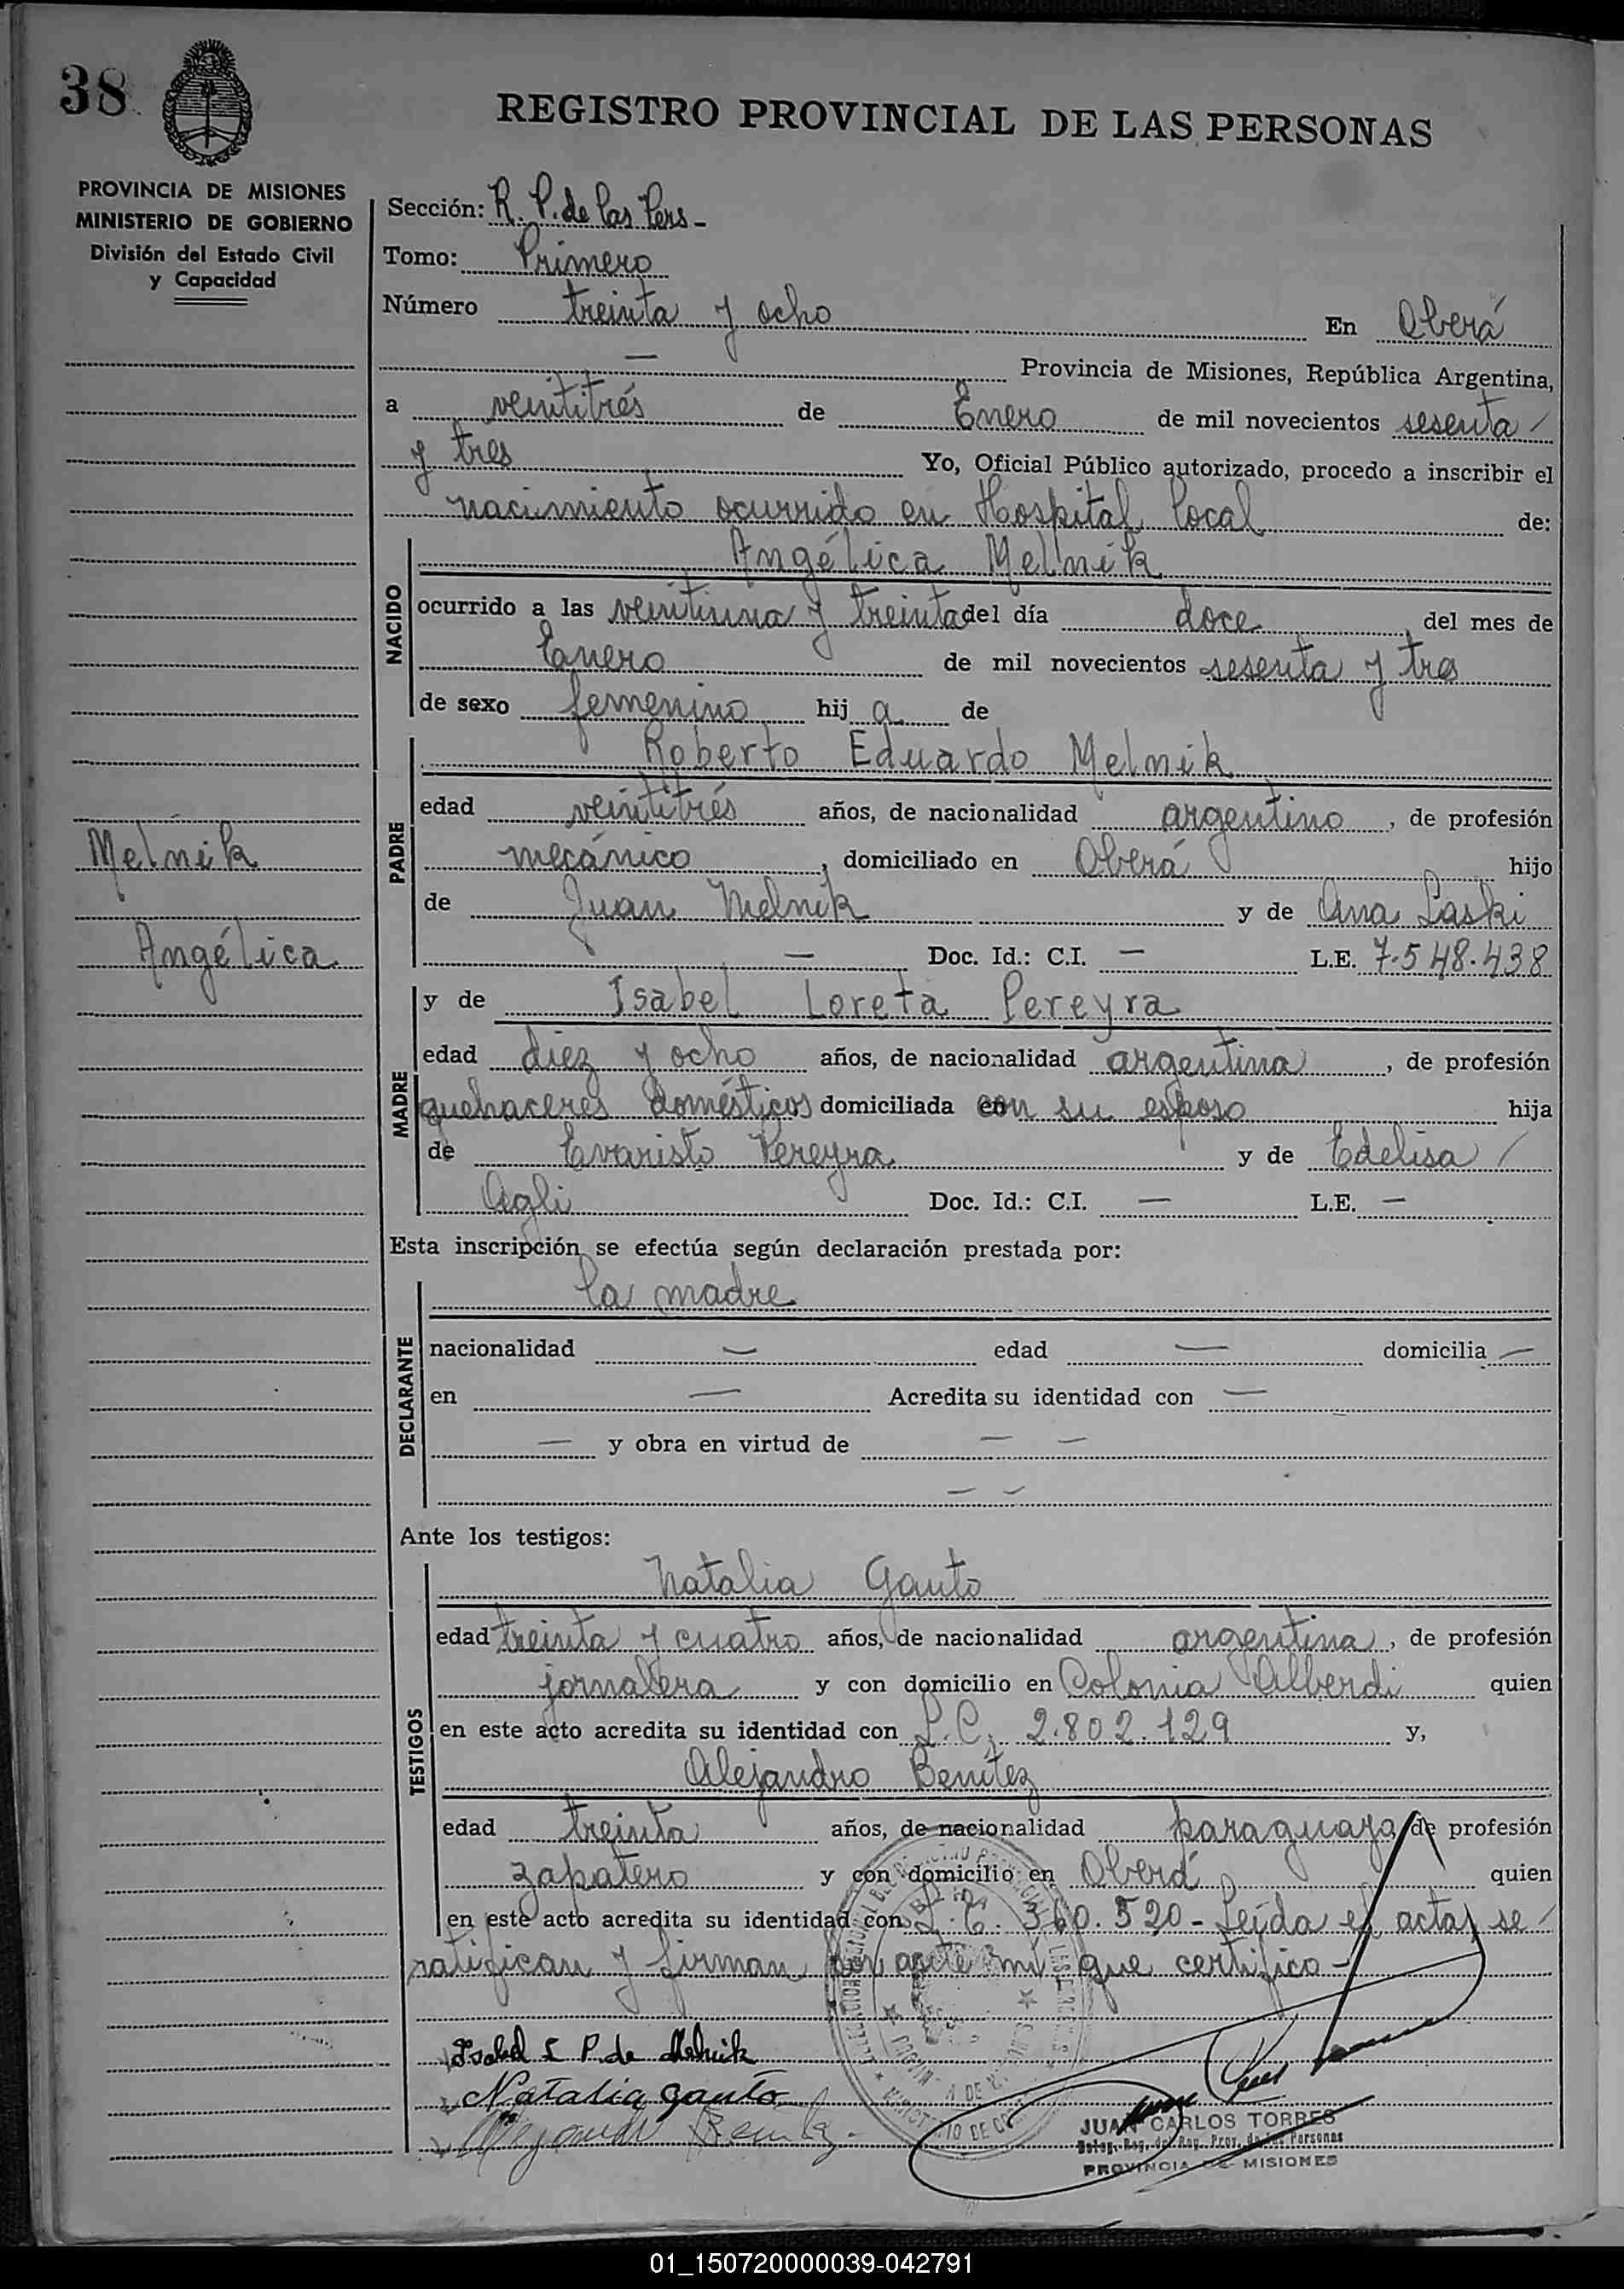 38
REGISTRO PROVINCIAL DE LAS PERSONAS
PROVINCIA DE MISIONES
MINISTERIO DE GOBIERNO
División del Estado Civil
y Capacidad
Sección: R. P. de las Pers -
Tomo: Primero
Número treinta y ocho En Oberá
— Provincia de Misiones, República Argentina,
a veintitrés de Enero de mil novecientos sesenta /
y tres Yo, Oficial Público autorizado, procedo a inscribir el
nacimiento ocurrido en Hospital local de:
NACIDO
Angélica Melnik
ocurrido a las veintiuna y treinta del día doce del mes de
Enero de mil novecientos sesenta y tres
de sexo femenino hij a de
PADRE
Roberto Eduardo Melnik
edad veintitrés años, de nacionalidad argentino, de profesión
mecánico, domiciliado en Oberá hijo
de Juan Melnik y de Ana Laski
— Doc. Id.: C.I. — L.E. 7.548.438
Melnik
Angélica
MADRE
y de Isabel Loreta Pereyra
edad diez y ocho años, de nacionalidad argentina, de profesión
quehaceres domésticos domiciliada con su esposo hija
de Evaristo Pereyra y de Edelisa /
Agli Doc. Id.: C.I. — L.E. —
Esta inscripción se efectúa según declaración prestada por:
DECLARANTE
la madre
nacionalidad — edad — domicilia —
en — Acredita su identidad con —
— y obra en virtud de — —
— —
Ante los testigos:
TESTIGOS
Natalia Gauto
edad treinta y cuatro años, de nacionalidad argentina, de profesión
jornalera y con domicilio en Colonia Alberdi quien
en este acto acredita su identidad con L.C. 2.802.129 y,
Alejandro Benítez
edad treinta años, de nacionalidad paraguaya, de profesión
zapatero y con domicilio en Oberá quien
en este acto acredita su identidad con 360.520 - Leída el acta, se /
ratifican y firman por ante mí que certifico -
Isabel L P. de Melnik
Natalia Gauto
Alejandro Benitez.
JUAN CARLOS TORRES
Deleg. Reg. del Reg. Prov. de las Personas
PROVINCIA DE MISIONES
01_150720000039-042791